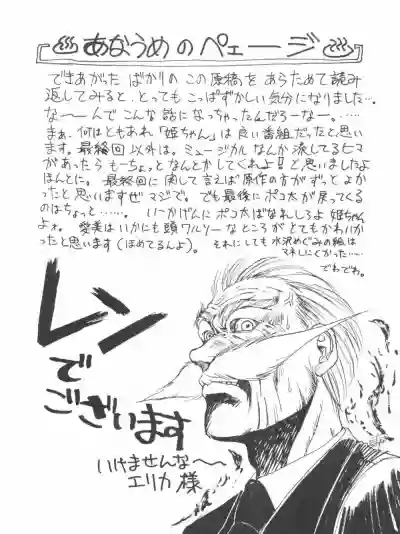 あなうめのペェージ
できあがった ばかりの この原稿を あらためて読み
返してみると、とっても こっぱずかしい気分になりました…。
な〜〜んで こんな 話になっちゃったんだろーなー。……
まぁ、何はともあれ「姫ちゃん」は良い番組だったと思い
ます。最終回以外は。ミュージカルなんか流してるヒマ
があったら もーちょっとなんとかしてくれよ!と思いましたよ
ほんとに。最終回に関して言えば原作の方がずっとよか
ったと思いますぜ マジで。でも最後にポコ太が戻ってくる
のはちょっと……。いーかげんに ポコ太ばなれしろよ 姫ちゃん
よォ。愛美はいかにも頭ワルソーなところが とてもかわいか
ったと思います(ほめてるんよ)。それにしても 水沢めぐみの絵は
マネしにくかった……
でわでわ。
レン
で
ございます
いけませんな〜〜
エリカ様